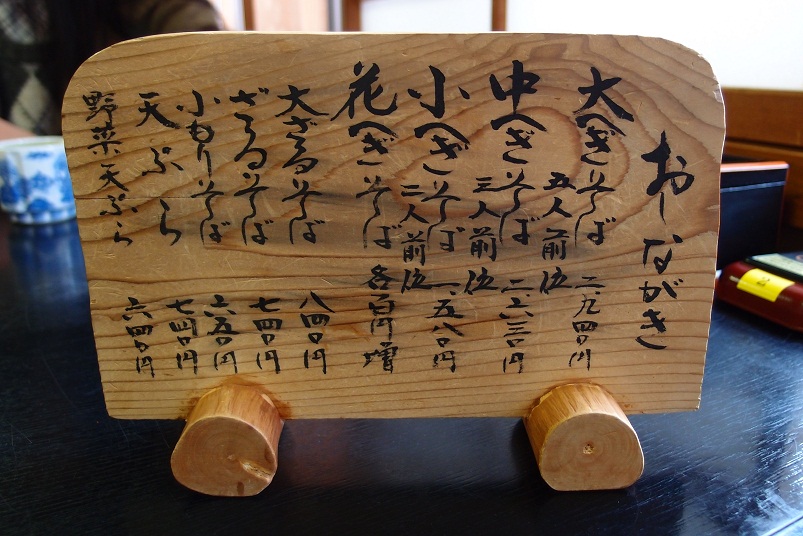 おしながき
大へぎそば 二、九四〇円
五人前位
中へぎそば 二、六三〇円
三人前位
小へぎそば 一、五八〇円
二人前位
花へぎそば 各百円増
大ざるそば 八四〇円
ざるそば 七四〇円
小もりそば 六五〇円
天ぷら 七四〇円
野菜天ぷら 六四〇円
2